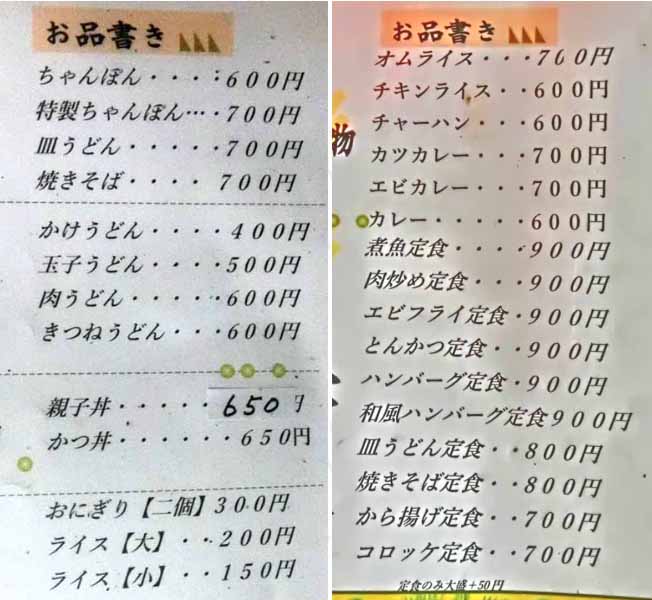 お品書き
ちゃんぽん・・・・600円
特製ちゃんぽん…・700円
皿うどん・・・・・700円
焼きそば・・・・700円
かけうどん・・・・400円
玉子うどん・・・・500円
肉うどん・・・・・600円
きつねうどん・・・600円
親子丼・・・・・・650円
かつ丼・・・・・・650円
おにぎり【二個】300円
ライス【大】・・200円
ライス【小】・・150円
お品書き
オムライス・・・700円
チキンライス・・600円
チャーハン・・・600円
カツカレー・・・700円
エビカレー・・・700円
カレー・・・・・600円
煮魚定食・・・・900円
肉炒め定食・・・900円
エビフライ定食・900円
とんかつ定食・・900円
ハンバーグ定食・900円
和風ハンバーグ定食900円
皿うどん定食・・800円
焼きそば定食・・800円
から揚げ定食・・700円
コロッケ定食・・700円
定食のみ大盛+50円
物